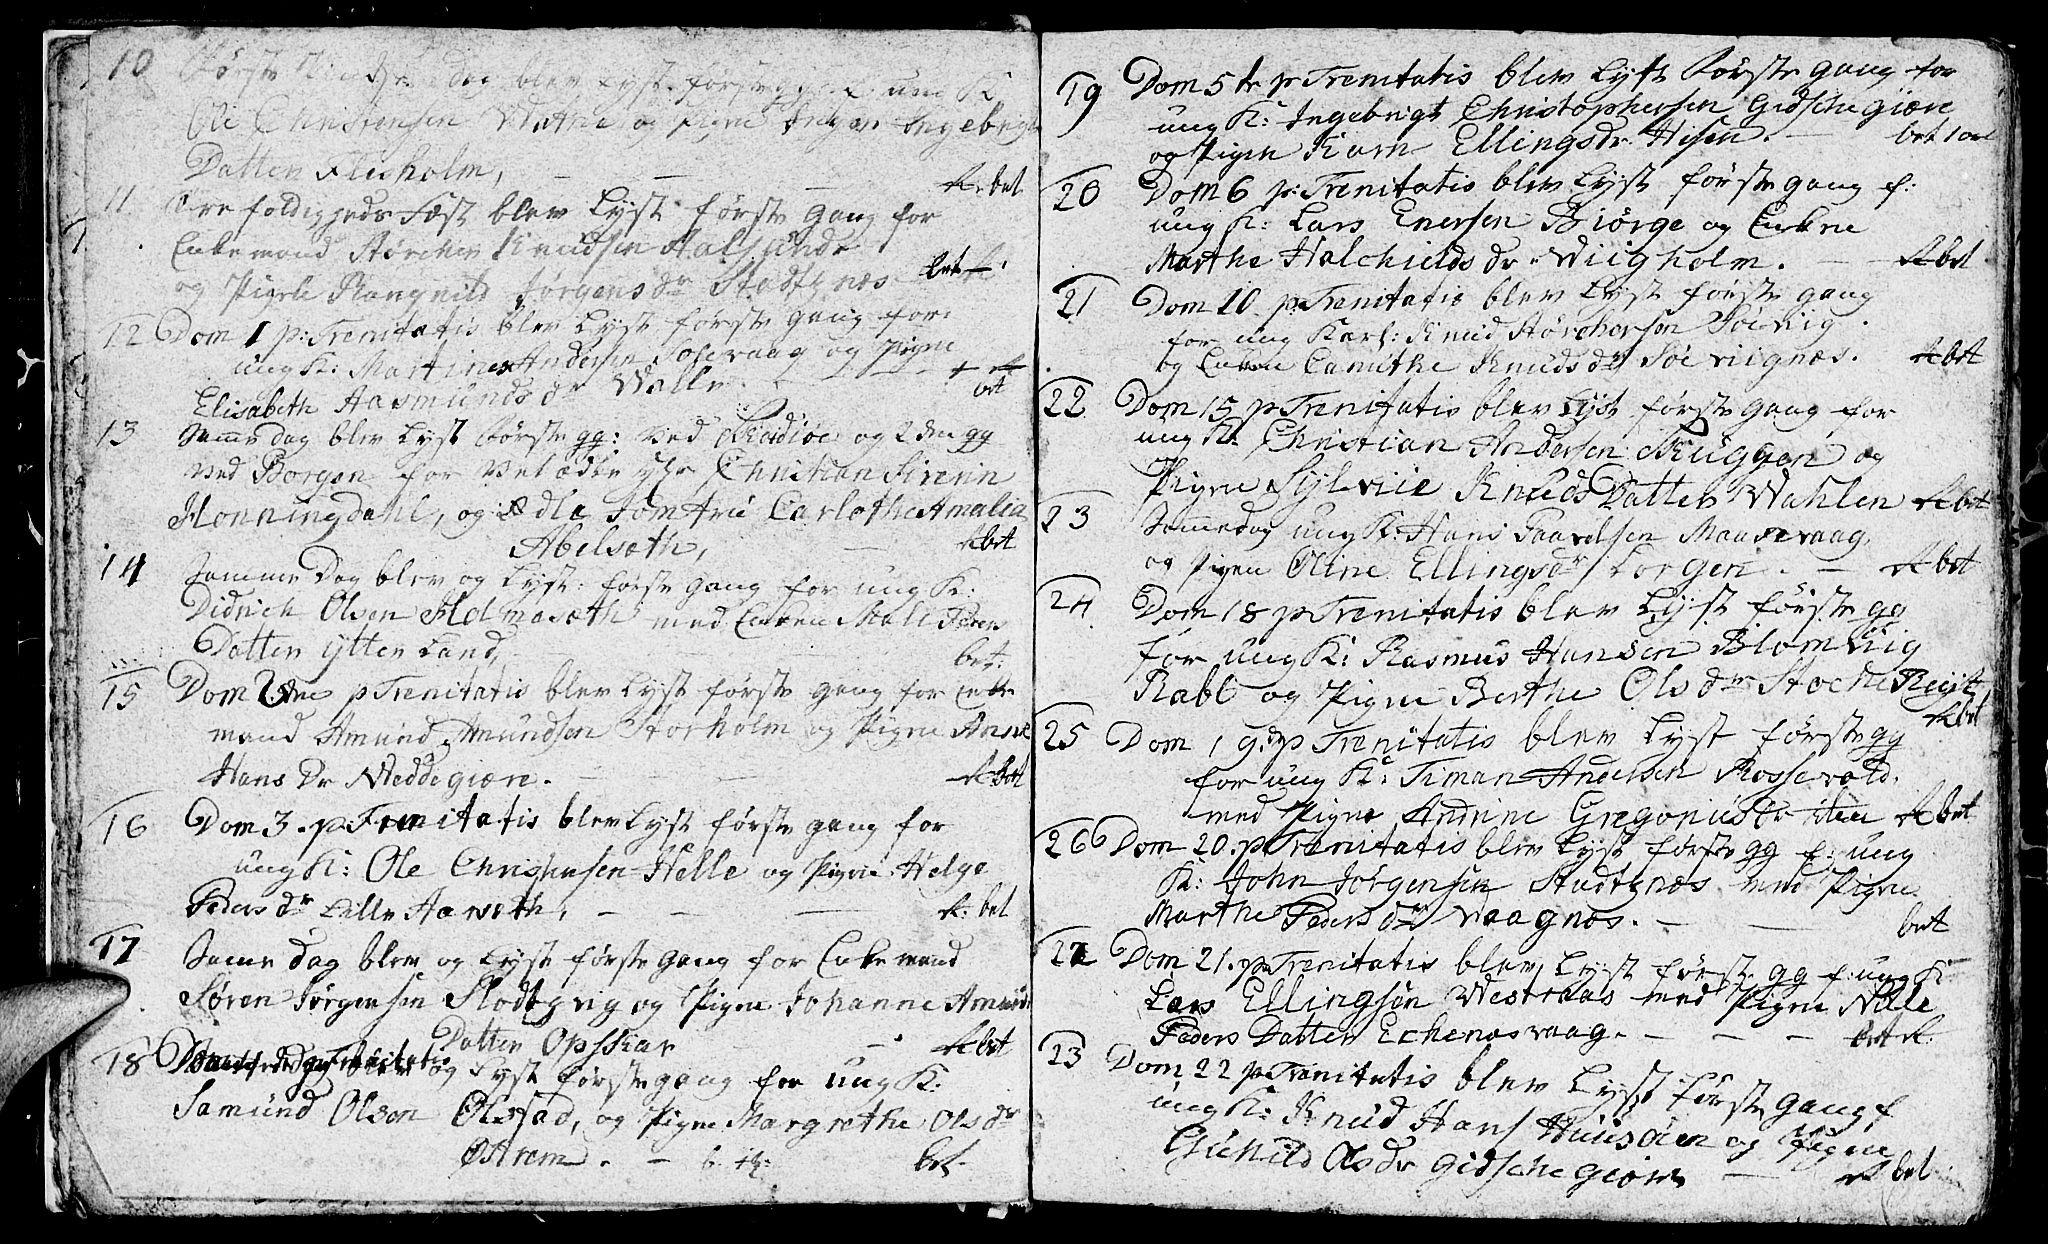 10 Første dag blev Lyst første gg. ung K
Ole Christensen Watne og Pigen Inger Ingebrigts
Datter Flisholm, — — — R bet
11 Trefoldigheds Fæst blev Lyst første Gang for
Enkemand Størcher Knudsen Aalsunde
og Pigen Rangnild Jørgens dr Stadtgnæs bet
12 Dom 1 p: Trenitatis blev Lyst første gang for
ung K: Martines Andersen Solevaag og Pigne
Elisabeth Aasmunds dr Walle bet
13 Samme dag blev Lyst første gg: ved og 2den gg
ved Borgen for Velædle Hr Christian Siverin
Honningdahl, og ædle Jomfrü Carlothe Amalia
Abelsæth, — R bet
14 Samme Dag blev og Lyst første Gang for ung K:
Didrich Olsen Holmesæth med Enken Mali Peders
Datter Ytterland, bet:
15 Dom 2den p Trenitatis blev Lyst første gang for Enke
mand Amund Amundsen Storholm og Pigne Anne
Hans Dr Weddegiære. — — R bet
16 Dom 3. p. Trenitatis blev Lyst første gang for
ung K: Ole Christensen Helle og Pigne Helge
Peders dr Lille Aarseth, — — — R: bet
17 Samme Dag blev og Lyst første Gang for Enkemand
Søren Jørgensen Slodtgvig og Pigne Johanne Amunds
Datter Opskar — R bet
18 og Lyst første gang for ung K.
Samund Olsen Olsstad, og Pigne Margrethe Ols dr
Østrem. — bet
19 Dom 5te p Trenitatis blev Lyst første gang for
ung K: Ingebrigt Christophersen Gidschegiære
og Pigen Karn Ellingsdr Hesen. — bet
20 Dom 6 p: Trenitatis blev Lyst første gang f:
ung K: Lars Enersen Biørge og Enkne
Marthe Halchields dr Wiigholm. — R bet
21 Dom 10 p Trenitatis blev Lyst første gang
for ung Karl: Knud Størchersen Søeviig
og Enkne Canuthe Knuds dr Søeviignæs. R bet
22 Dom 15 p Trenitatis blev Lyst første gang for
ung K: Christian Andersen Skuggen og
Pigne Sylviie Knuds Datter Wahlen R bet
23 Samme dag ung K: Hans Paavelsen Mausevaag
og Pigen Oline Ellings dr Lorgen. — R bet
24 Dom 18 p Trenitatis blev Lyst første gg
før ung K: Rasmus Hansen Blomviig
Rabl og Pigne Berthe Ols dr Stocke Reyt
R bet
25 Dom 19. p Trenitatis blev Lyst første gg
for ung K: Timan Andersen Rossevold
med Pigne Andrine Gregorius dr R bet
26 Dom 20. p. Trenitatis blev Lyst første gg f: ung
K: John Jørgensen Stadtgnæs med Pigne
Marthe Peders dr Waagnæs. — — bet
27 Dom 21. p Trenitatis blev Lyst første gg f: ung K:
Lars Ellingsøn Westraas med Pigne Nille
Peders Datter Echenæsvaag. — — — bet R:
23 Dom 22 p Trenitatis blev Lyst første gang f
ung K: Knud Hans Huusøen og Pigne
Gunild Ols dr Gidschegiøre — R bet